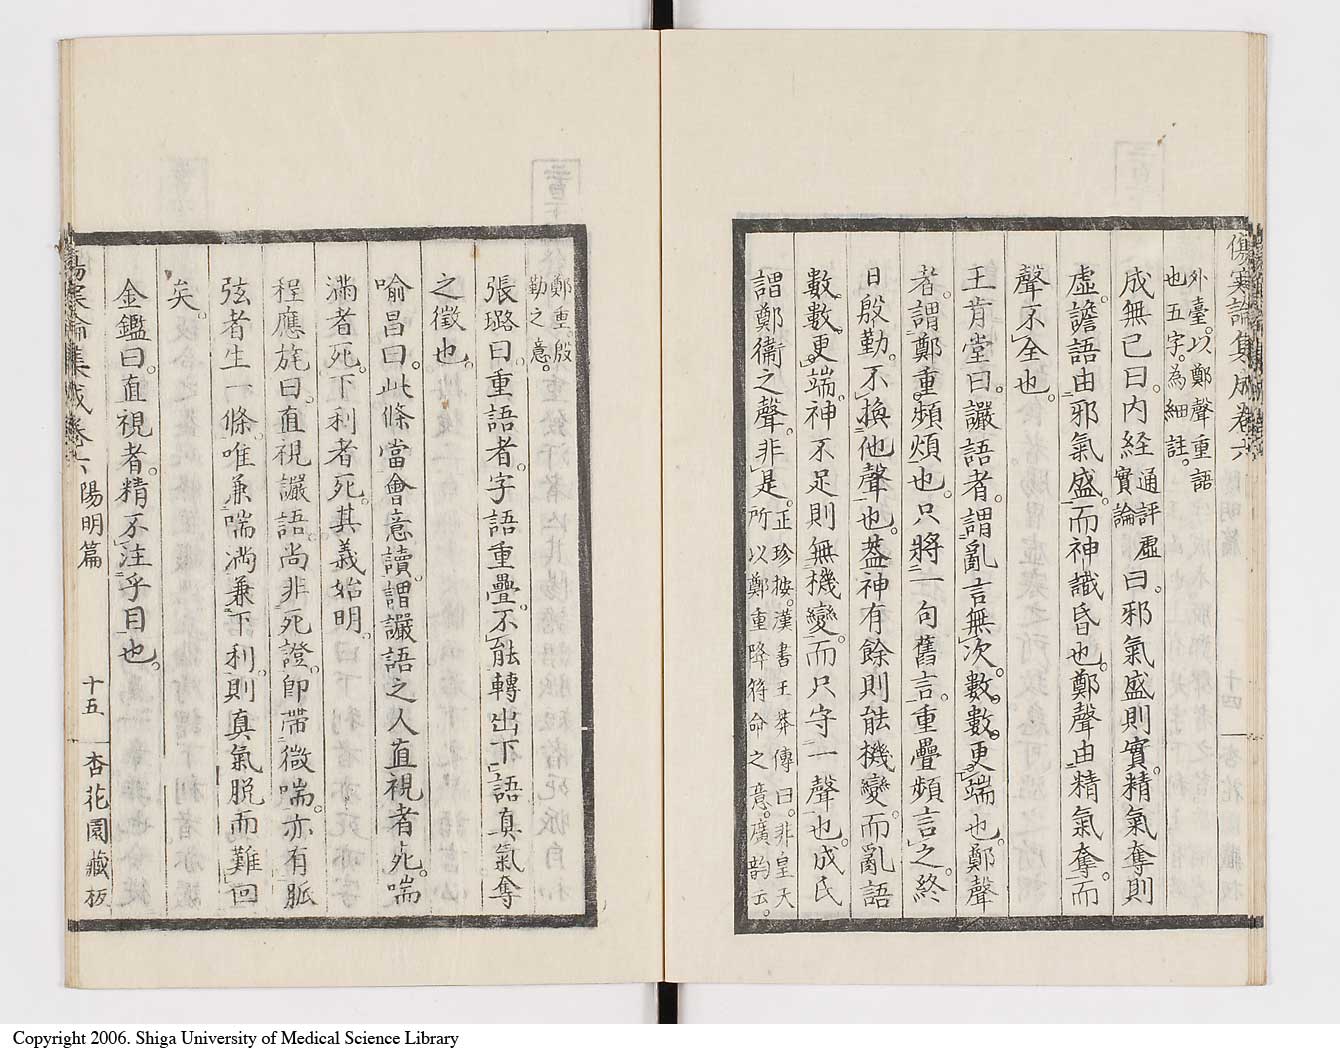 傷寒論集成卷六
外臺。以鄭聲重語
也五字。為細註。
成無已曰。内経通評虛實論曰邪氣盛則實。精氣奪則
虛。譫語由邪氣盛。而神識昏也。鄭聲由精氣奪。而
聲不全也。
王肯堂曰。讝語者。謂亂言無次。數數更端也。鄭聲
者。謂鄭重頻煩也。只將一句舊言。重疊頻言之。終
日殷勤。不換他聲也。葢神有餘則能機變。而亂語
數數更端。神不足則無機變。而只守一聲也。成氏
謂鄭衛之聲。非是。正珍按。漢書王莽傳曰。非皇天所以鄭重降符命之意。廣韵云。
鄭重。殷
勤之意。
張璐曰。重語者。字語重疊。不能轉出下語。真氣奪
之徵也。
喻昌曰。此條當會意讀。謂讝語之人直視者死。喘
滿者死。下利者死。其義始明。
程應旄曰。直視讝語。尚非死證。即帶微喘。亦有脈
弦者生一條。唯兼喘滿兼下利。則真氣脱而難回
矣。
金鑑曰。直視者。精不注乎目也。
傷寒論集成卷六 陽明篇 十五 杏花園藏板
Copyright 2006. Shiga University of Medical Science Library